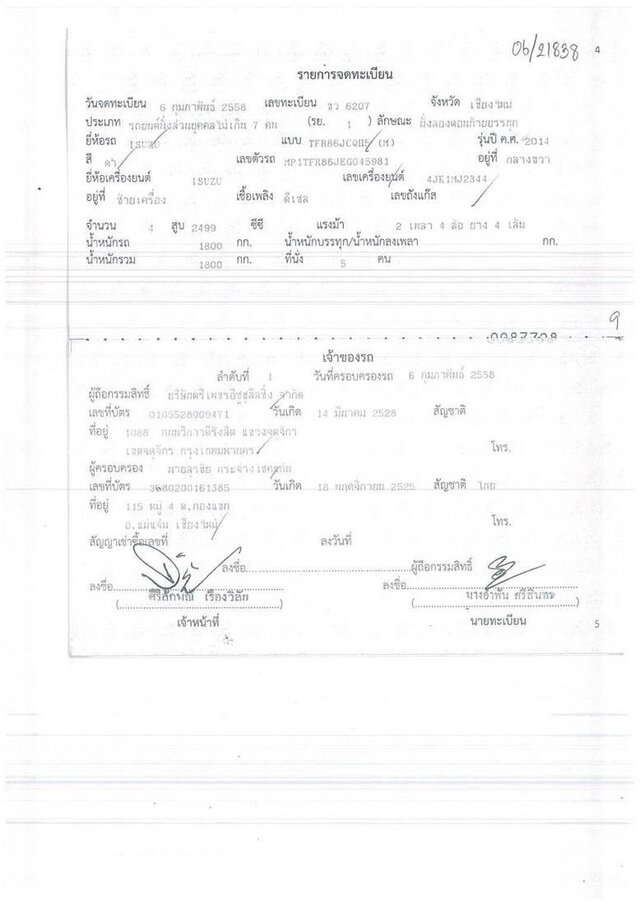 06/21838 4
รายการจดทะเบียน
วันจดทะเบียน 6 กุมภาพันธ์ 2558 เลขทะเบียน ขว 6207 จังหวัด เชียงใหม่
ประเภท รถยนต์นั่งส่วนบุคคลไม่เกิน 7 คน (รย. 1 ) ลักษณะ นั่งสองตอนท้ายบรรทุก
ยี่ห้อรถ ISUZU แบบ (M) รุ่นปี ค.ศ. 2014
สี ดำ เลขตัวรถ MP1TFR86JEG045981 อยู่ที่ กลางขวา
ยี่ห้อเครื่องยนต์ ISUZU เลขเครื่องยนต์ 4JK1MJ2344
อยู่ที่ ซ้ายเครื่อง เชื้อเพลิง ดีเซล เลขถังแก๊ส
จำนวน 4 สูบ 2499 ซีซี แรงม้า 2 เพลา 4 ล้อ ยาง 4 เส้น
น้ำหนักรถ 1800 กก. น้ำหนักบรรทุก/น้ำหนักลงเพลา กก.
น้ำหนักรวม 1800 กก. ที่นั่ง 5 คน
9
เจ้าของรถ
ลำดับที่ 1 วันที่ครอบครองรถ 6 กุมภาพันธ์ 2558
ผู้ถือกรรมสิทธิ์ บริษัทตรีเพชรอีซูซุลิสซิ่ง จำกัด
เลขที่บัตร 0105528009471 วันเกิด 14 มีนาคม 2528 สัญชาติ
ที่อยู่ 1088 ถนนวิภาวดีรังสิต แขวงจตุจักร
เขตจตุจักร กรุงเทพมหานคร โทร.
ผู้ครอบครอง
เลขที่บัตร 3580200161385 วันเกิด 18 พฤศจิกายน 2525 สัญชาติ ไทย
ที่อยู่ 115 หมู่ 4 ต.กองแขก
อ.แม่แจ่ม เชียงใหม่ โทร.
สัญญาเช่าซื้อเลขที่ ลงวันที่
ลงชื่อ ผู้ถือกรรมสิทธิ์
ลงชื่อ ลงชื่อ
ศิริลักษณ์ เรืองวิลัย
เจ้าหน้าที่ นายทะเบียน 5